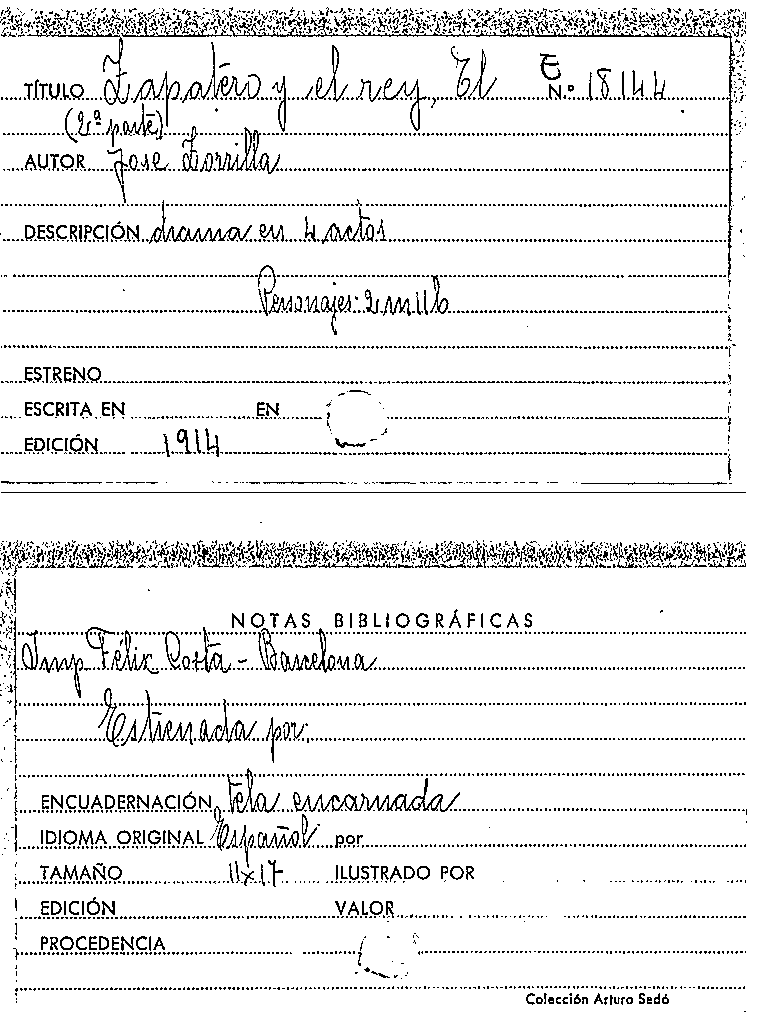 TÍTULO Zapatero y el rey, El E N.º 18144
(2ª parte)
AUTOR Jose Zorrilla
DESCRIPCIÓN drama en 4 actos
Personajes: 2 m 11 h
ESTRENO
ESCRITA EN EN
EDICIÓN 1914
NOTAS BIBLIOGRÁFICAS
Imp Félix Costa - Barcelona
Estrenada por:
ENCUADERNACIÓN tela encarnada
IDIOMA ORIGINAL Español por
TAMAÑO 11x17 ILUSTRADO POR
EDICIÓN VALOR
PROCEDENCIA
Colección Arturo Sedó